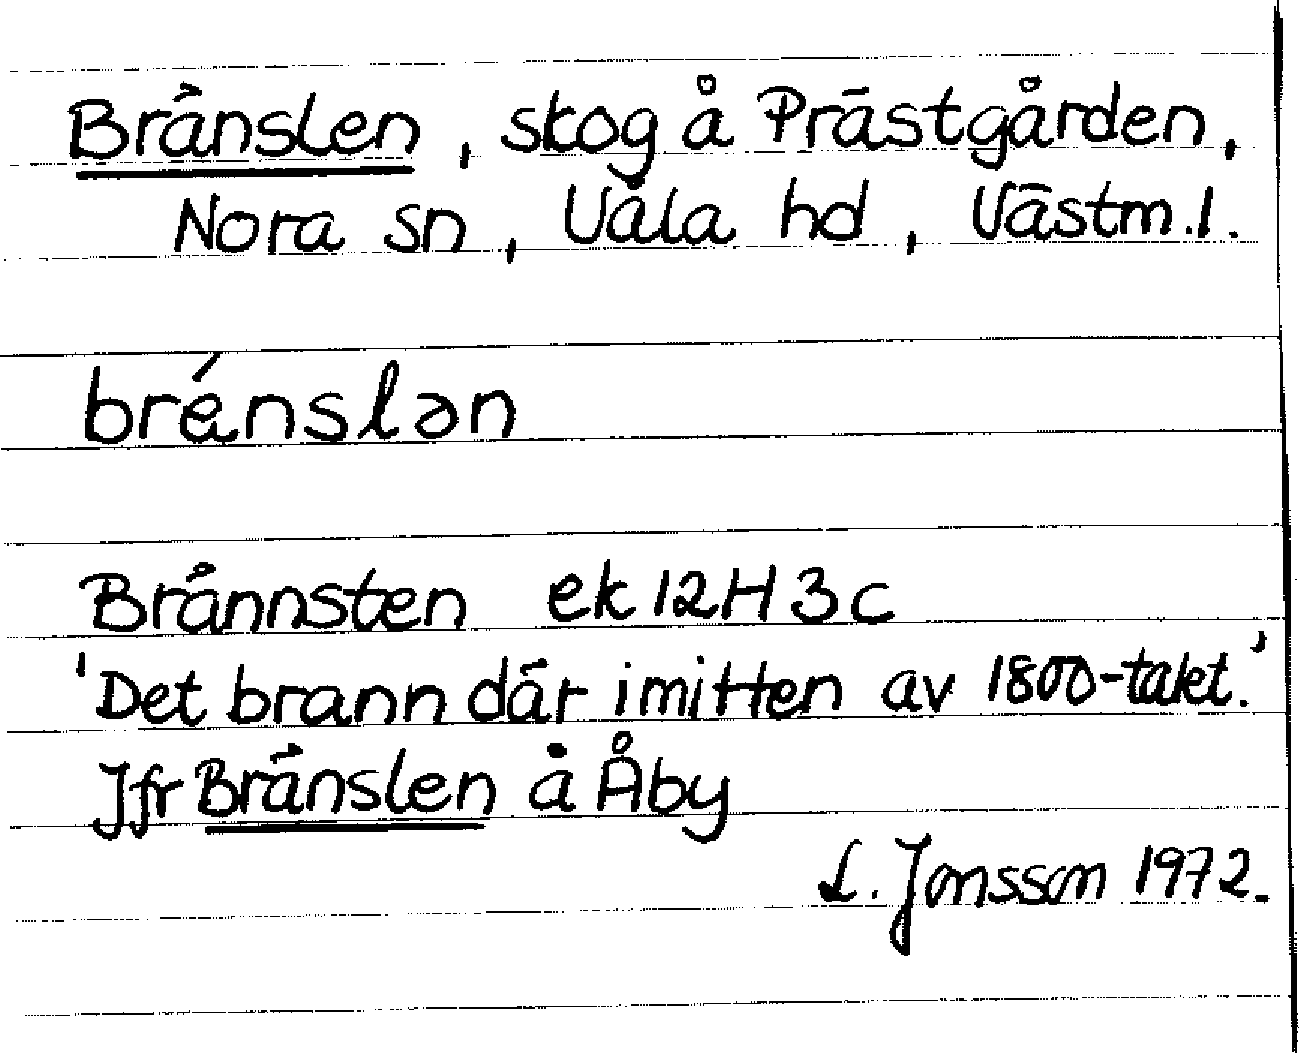 Bränslen, skog å Prästgården,
Nora sn, Våla hd, Västm.l.
brénslən
Brännsten ek 12H 3c
'Det brann där i mitten av 1800-talet.'
Jfr Bränslen å Åby
L. Jonsson 1972.